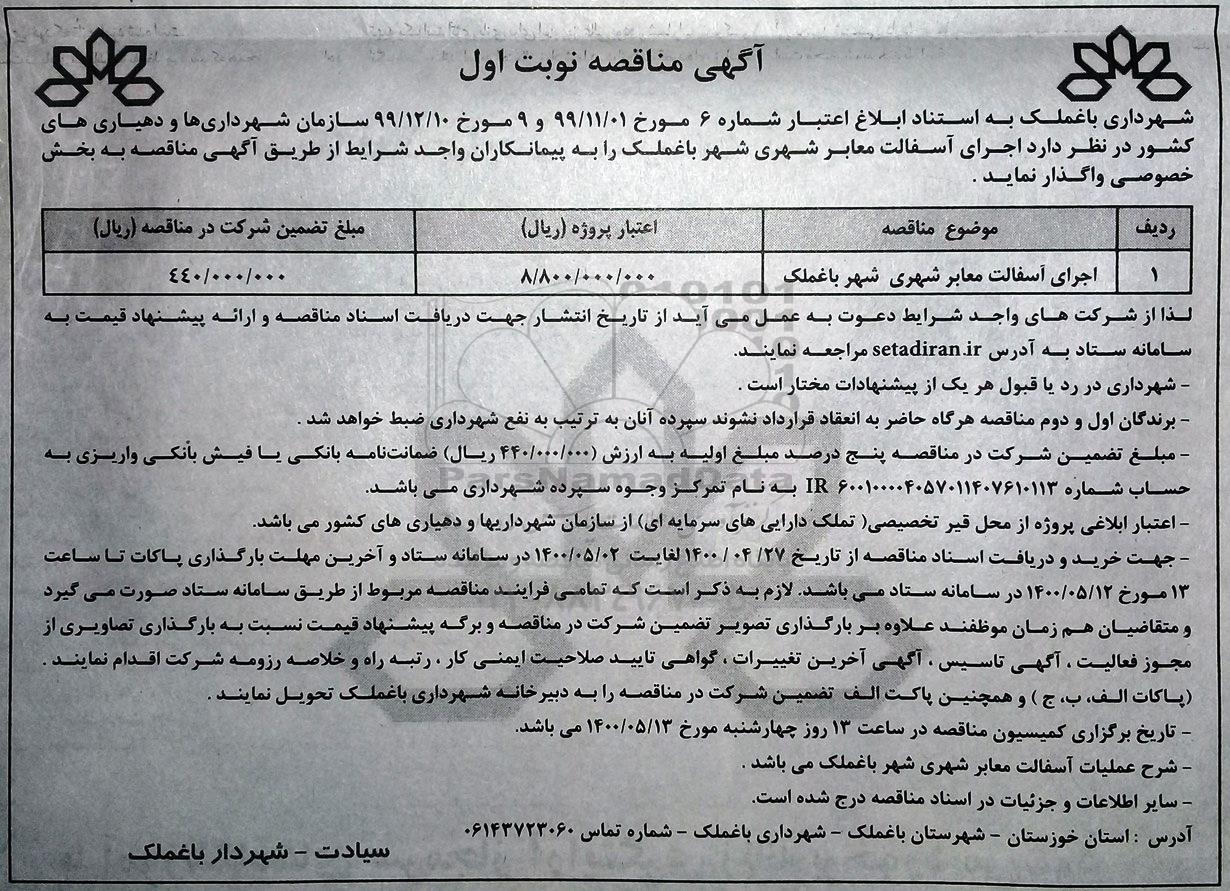 آگهی مناقصه نوبت اول
شهرداری باغملک به استناد ابلاغ اعتبار شماره ۶ مورخ ۹۹/۱۱/۰۱ و ۹ مورخ ۹۹/۱۲/۱۰ سازمان شهرداری‌ها و دهیاری های
کشور در نظر دارد اجرای آسفالت معابر شهری شهر باغملک را به پیمانکاران واجد شرایط از طریق آگهی مناقصه به بخش
خصوصی واگذار نماید .
ردیف موضوع مناقصه اعتبار پروژه (ریال) مبلغ تضمین شرکت در مناقصه (ریال)
۱ اجرای آسفالت معابر شهری شهر باغملک ۸/۸۰۰/۰۰۰/۰۰۰ ٤٤٠/٠٠٠/٠٠٠
لذا از شرکت های واجد شرایط دعوت به عمل می آید از تاریخ انتشار جهت دریافت اسناد مناقصه و ارائه پیشنهاد قیمت به
سامانه ستاد به آدرس setadiran.ir مراجعه نمایند.
- شهرداری در رد یا قبول هر یک از پیشنهادات مختار است .
- برندگان اول و دوم مناقصه هرگاه حاضر به انعقاد قرارداد نشوند سپرده آنان به ترتیب به نفع شهرداری ضبط خواهد شد .
- مبلغ تضمین شرکت در مناقصه پنج درصد مبلغ اولیه به ارزش (۴۴۰/۰۰۰/۰۰۰ ریال) ضمانت‌نامه بانکی یا فیش بانکی واریزی به
حساب شماره IR ۶۰۰۱۰۰۰۰۴۰۵۷۰۱۱۴۰۷۶۱۰۱۱۳ به نام تمرکز وجوه سپرده شهرداری می باشد.
- اعتبار ابلاغی پروژه از محل قیر تخصیصی( تملک دارایی های سرمایه ای) از سازمان شهرداریها و دهیاری های کشور می باشد.
- جهت خرید و دریافت اسناد مناقصه از تاریخ ۲۷/ ۰۴ / ۱۴۰۰ لغایت ۱۴۰۰/۰۵/۰۲ در سامانه ستاد و آخرین مهلت بارگذاری پاکات تا ساعت
۱۳ مورخ ۱۴۰۰/۰۵/۱۲ در سامانه ستاد می باشد. لازم به ذکر است که تمامی فرایند مناقصه مربوط از طریق سامانه ستاد صورت می گیرد
و متقاضیان هم زمان موظفند علاوه بر بارگذاری تصویر تضمین شرکت در مناقصه و برگه پیشنهاد قیمت نسبت به بارگذاری تصاویری از
مجوز فعالیت ، آگهی تاسیس ، آگهی آخرین تغییرات ، گواهی تایید صلاحیت ایمنی کار ، رتبه راه و خلاصه رزومه شرکت اقدام نمایند .
(پاکات الف، ب، ج ) و همچنین پاکت الف تضمین شرکت در مناقصه را به دبیرخانه شهرداری باغملک تحویل نمایند .
- تاریخ برگزاری کمیسیون مناقصه در ساعت ۱۳ روز چهارشنبه مورخ ۱۴۰۰/۰۵/۱۳ می باشد.
- شرح عملیات آسفالت معابر شهری شهر باغملک می باشد .
- سایر اطلاعات و جزئیات در اسناد مناقصه درج شده است.
آدرس : استان خوزستان - شهرستان باغملک - شهرداری باغملک - شماره تماس ۰۶۱۴۳۷۲۳۰۶۰
سیادت - شهردار باغملک
ParsNamadData